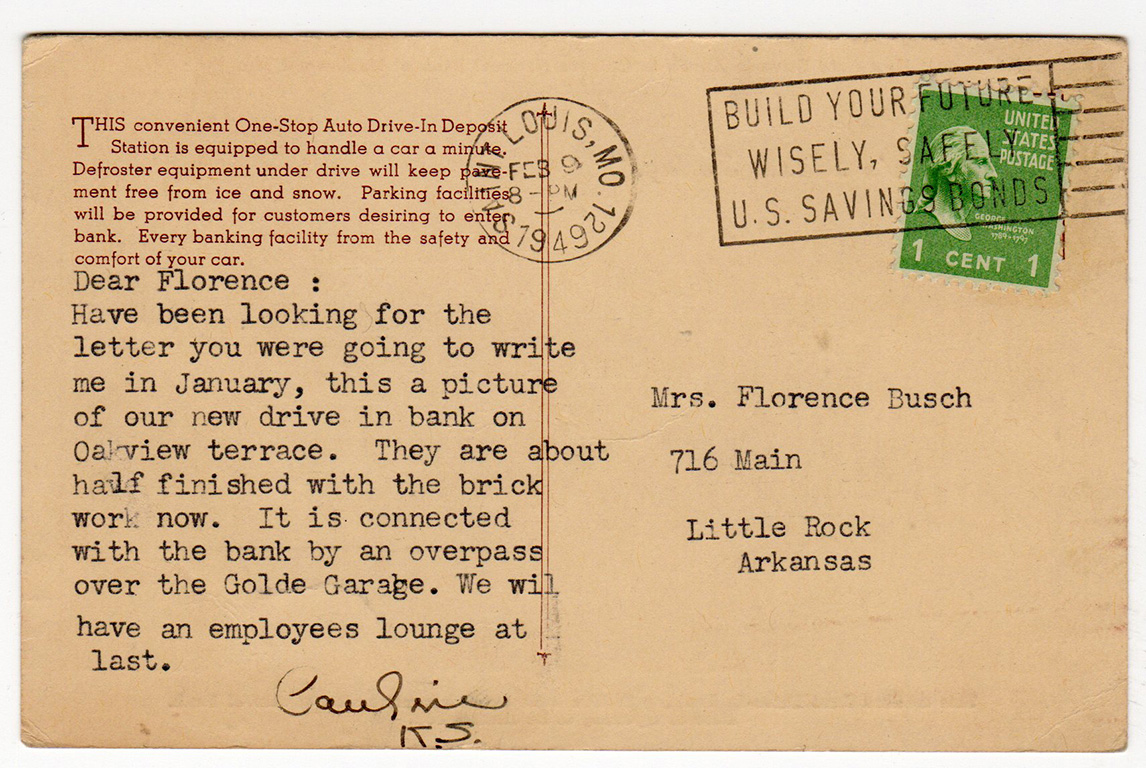 THIS convenient One-Stop Auto Drive-In Deposit
Station is equipped to handle a car a minute.
Defroster equipment under drive will keep pave-
ment free from ice and snow. Parking facilities
will be provided for customers desiring to enter
bank. Every banking facility from the safety and
comfort of your car.
Dear Florence :
Have been looking for the
letter you were going to write
me in January, this a picture
of our new drive in bank on
Oakview terrace. They are about
half finished with the brick
work now. It is connected
with the bank by an overpass
over the Golde Garage. We wil
have an employees lounge at
last.
K.S.
SAINT LOUIS, MO. 12
FEB 9
8 - PM
1949
BUILD YOUR FUTURE
WISELY, SAFELY
U.S. SAVINGS BONDS
UNITED
STATES
POSTAGE
GEORGE
WASHINGTON
1789-1797
1 CENT 1
Mrs. Florence Busch
716 Main
Little Rock
Arkansas